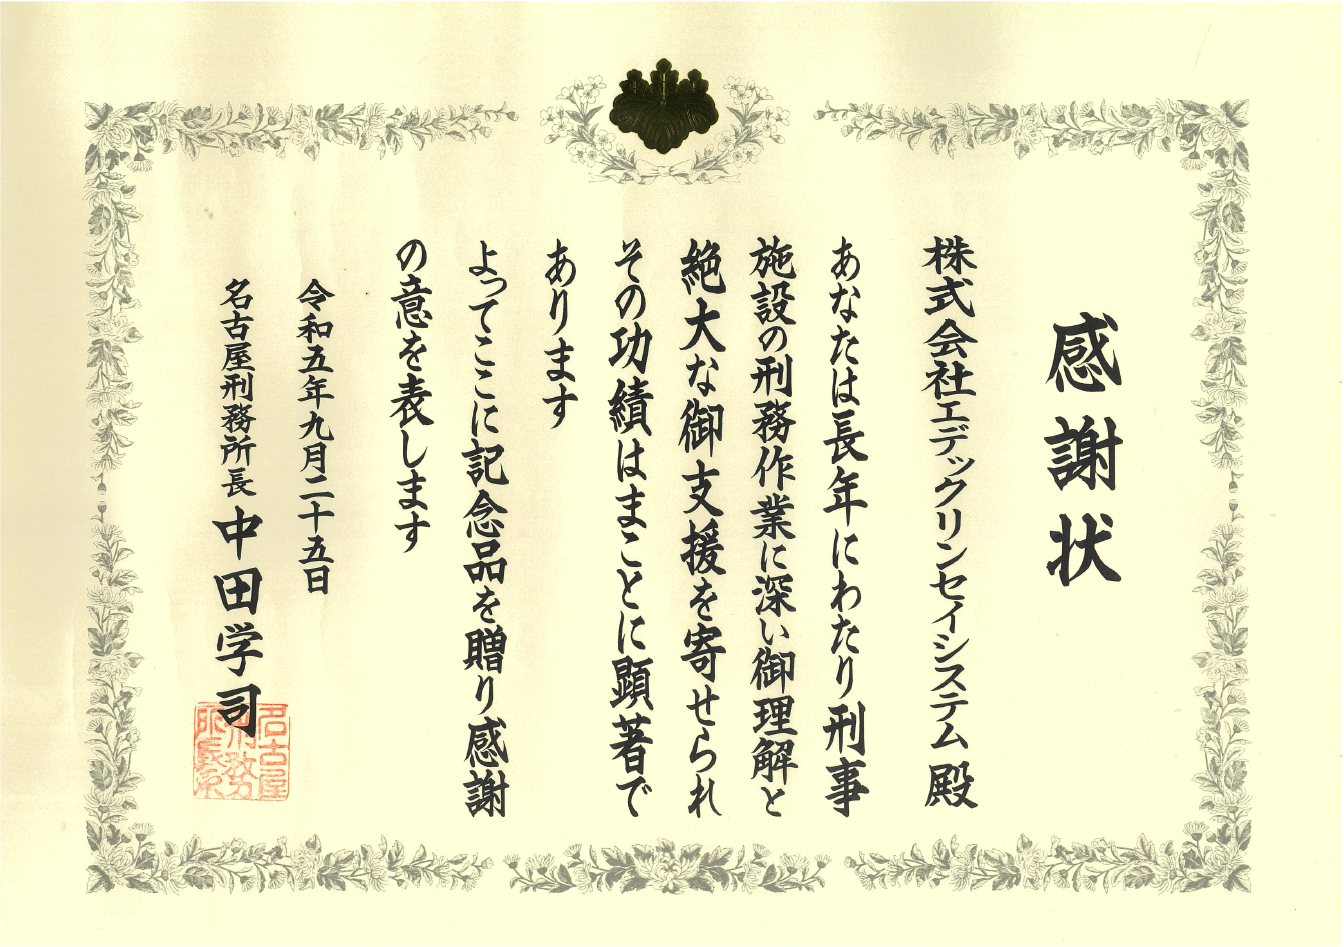 感謝状
株式会社エデックリンセイシステム殿
あなたは長年にわたり刑事
施設の刑務作業に深い御理解と
絶大な御支援を寄せられ
その功績はまことに顕著で
あります
よってここに記念品を贈り感謝
の意を表します
令和五年九月二十五日
名古屋刑務所長 中田学司
名古屋
刑務
所長印